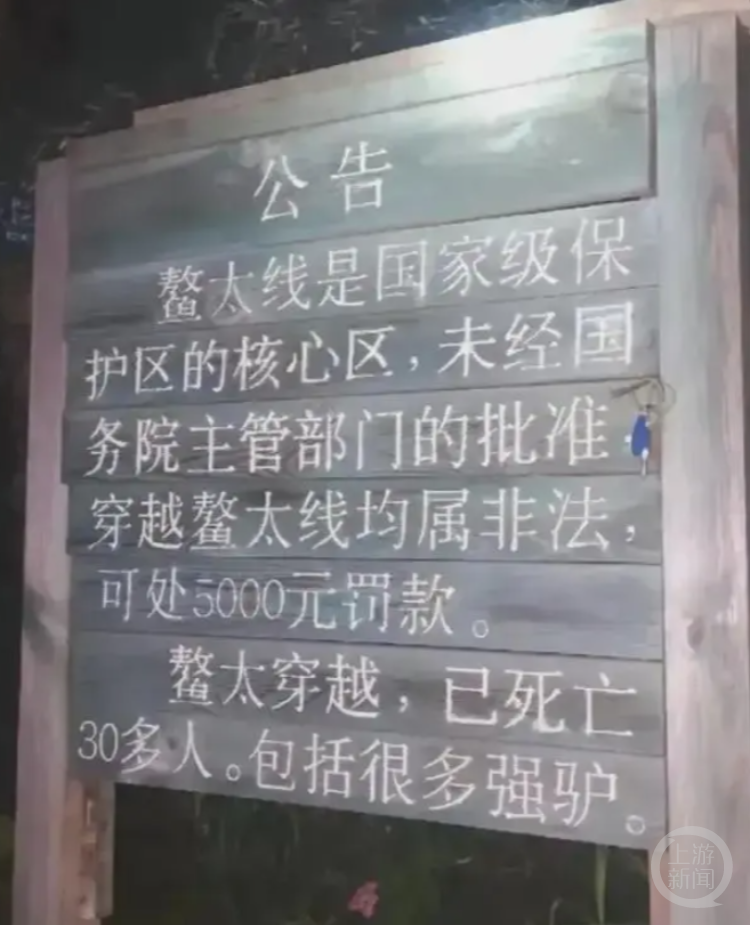 公告
鳌太线是国家级保
护区的核心区，未经国
务院主管部门的批准
穿越鳌太线均属非法，
可处5000元罚款。
鳌太穿越，已死亡
30多人。包括很多强驴。
上游
新闻